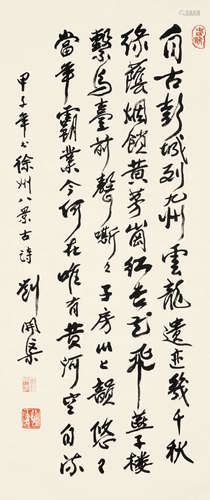 自古彭城列九州雲龍遺迹幾千秋
綠蔭烟鎖黃茅崗紅杏花飛燕子樓
繫馬臺前聲嘶々子房山上韻悠々
當年霸業今何在唯有黃河空自流
甲子年書徐州八景古詩